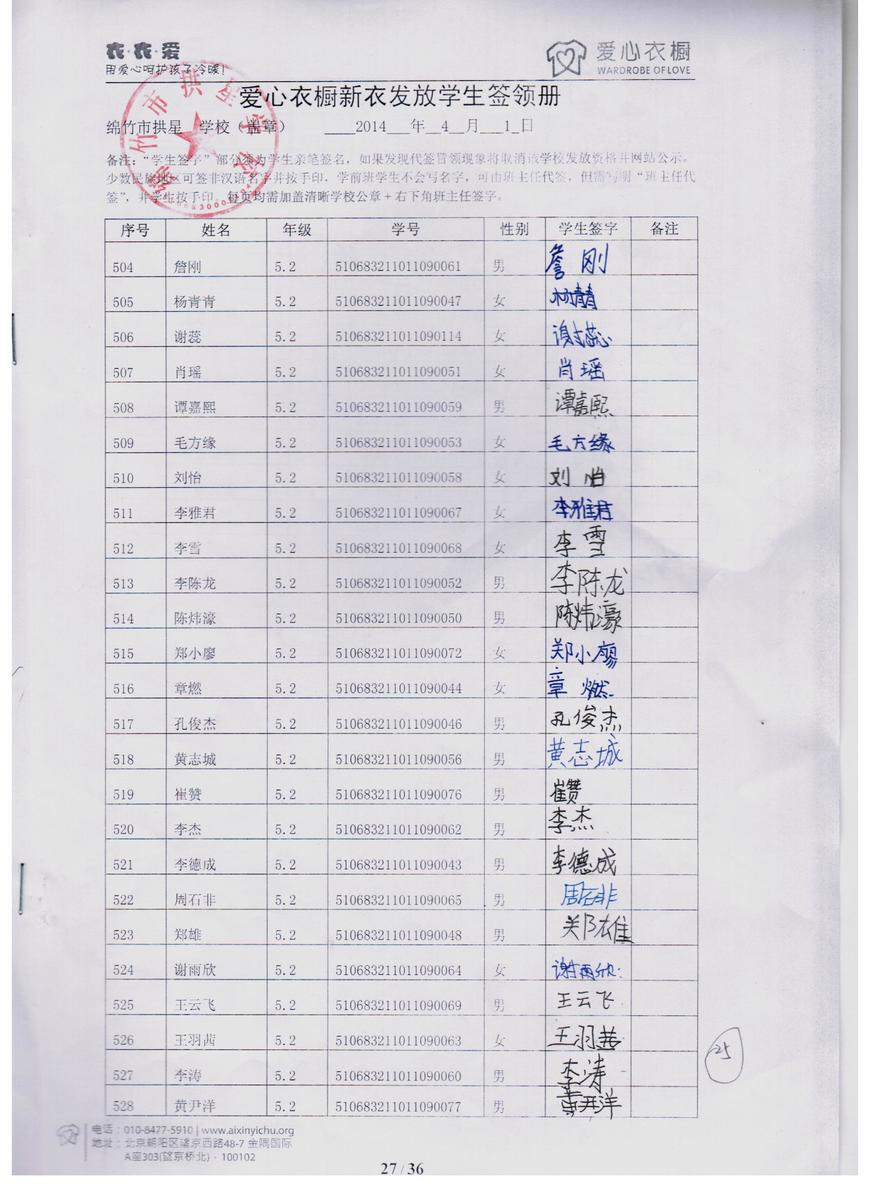 衣·衣·爱
用爱心呵护孩子冷暖!
爱心衣橱
WARDROBE OF LOVE
爱心衣橱新衣发放学生签领册
绵竹市拱星 学校（盖章） 2014 年 4 月 1 日
备注："学生签字"部分须为学生亲笔签名，如果发现代签冒领现象将取消该学校发放资格并网站公示。
少数民族地区可签非汉语名字并按手印，学前班学生不会写名字，可由班主任代签，但需写明"班主任代
签"，并学生按手印。每页均需加盖清晰学校公章+右下角班主任签字。
序号 姓名 年级 学号 性别 学生签字 备注
504 詹刚 5.2 510683211011090061 男 詹刚
505 杨青青 5.2 510683211011090047 女 杨青青
506 谢蕊 5.2 510683211011090114 女 谢蕊
507 肖瑶 5.2 510683211011090051 女 肖瑶
508 谭嘉熙 5.2 510683211011090059 男 谭嘉熙
509 毛方缘 5.2 510683211011090053 女 毛方缘
510 刘怡 5.2 510683211011090058 女 刘怡
511 李雅君 5.2 510683211011090067 女 李雅君
512 李雪 5.2 510683211011090068 女 李雪
513 李陈龙 5.2 510683211011090052 男 李陈龙
514 陈炜濠 5.2 510683211011090050 男 陈炜濠
515 郑小廖 5.2 510683211011090072 女 郑小廖
516 章燃 5.2 510683211011090044 女 章燃
517 孔俊杰 5.2 510683211011090046 男 孔俊杰
518 黄志城 5.2 510683211011090056 男 黄志城
519 崔赞 5.2 510683211011090076 男 崔赞
520 李杰 5.2 510683211011090062 男 李杰
521 李德成 5.2 510683211011090043 男 李德成
522 周石非 5.2 510683211011090065 男 周石非
523 郑雄 5.2 510683211011090048 男 郑雄
524 谢雨欣 5.2 510683211011090064 女 谢雨欣
525 王云飞 5.2 510683211011090069 男 王云飞
526 王羽茜 5.2 510683211011090063 女 王羽茜
527 李涛 5.2 510683211011090060 男 李涛
528 黄尹洋 5.2 510683211011090077 男 黄尹洋
25
电话：010-8477-5910 | www.aixinyichu.org
地址：北京朝阳区望京西路48-7 金隅国际
A座303(望京桥北) · 100102
27 / 36